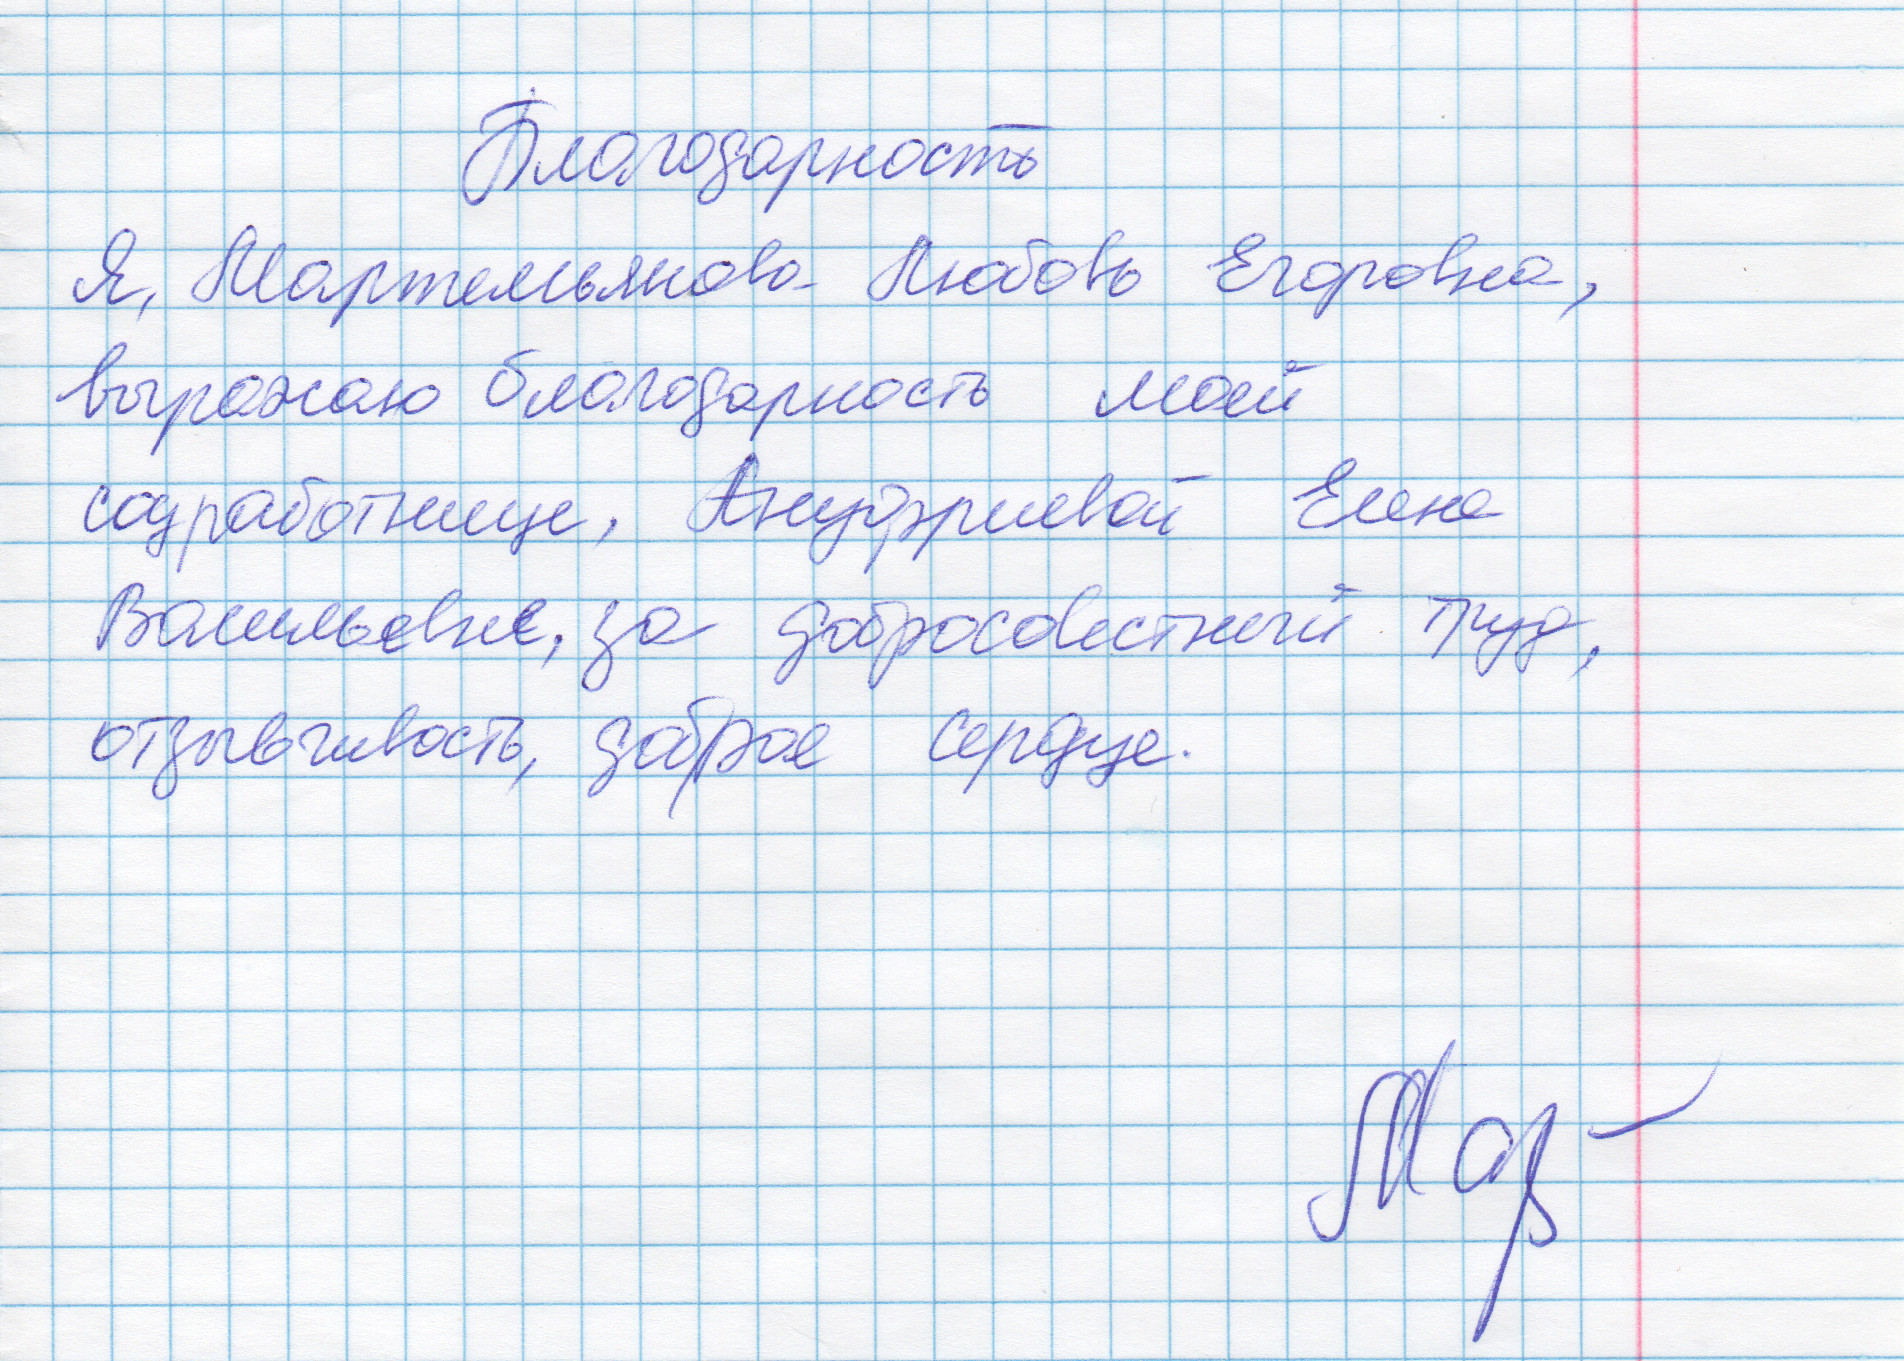 Благодарность
Я, Мартемьянова Любовь Егоровна,
выражаю благодарность моей
соцработнице, Ануфриевой Елене
Васильевне, за добросовестный труд,
отзывчивость, доброе сердце.
Мар